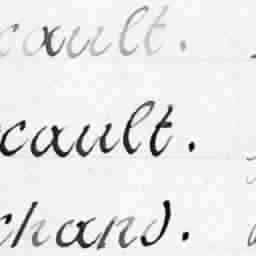 cault.
cault.
chand.